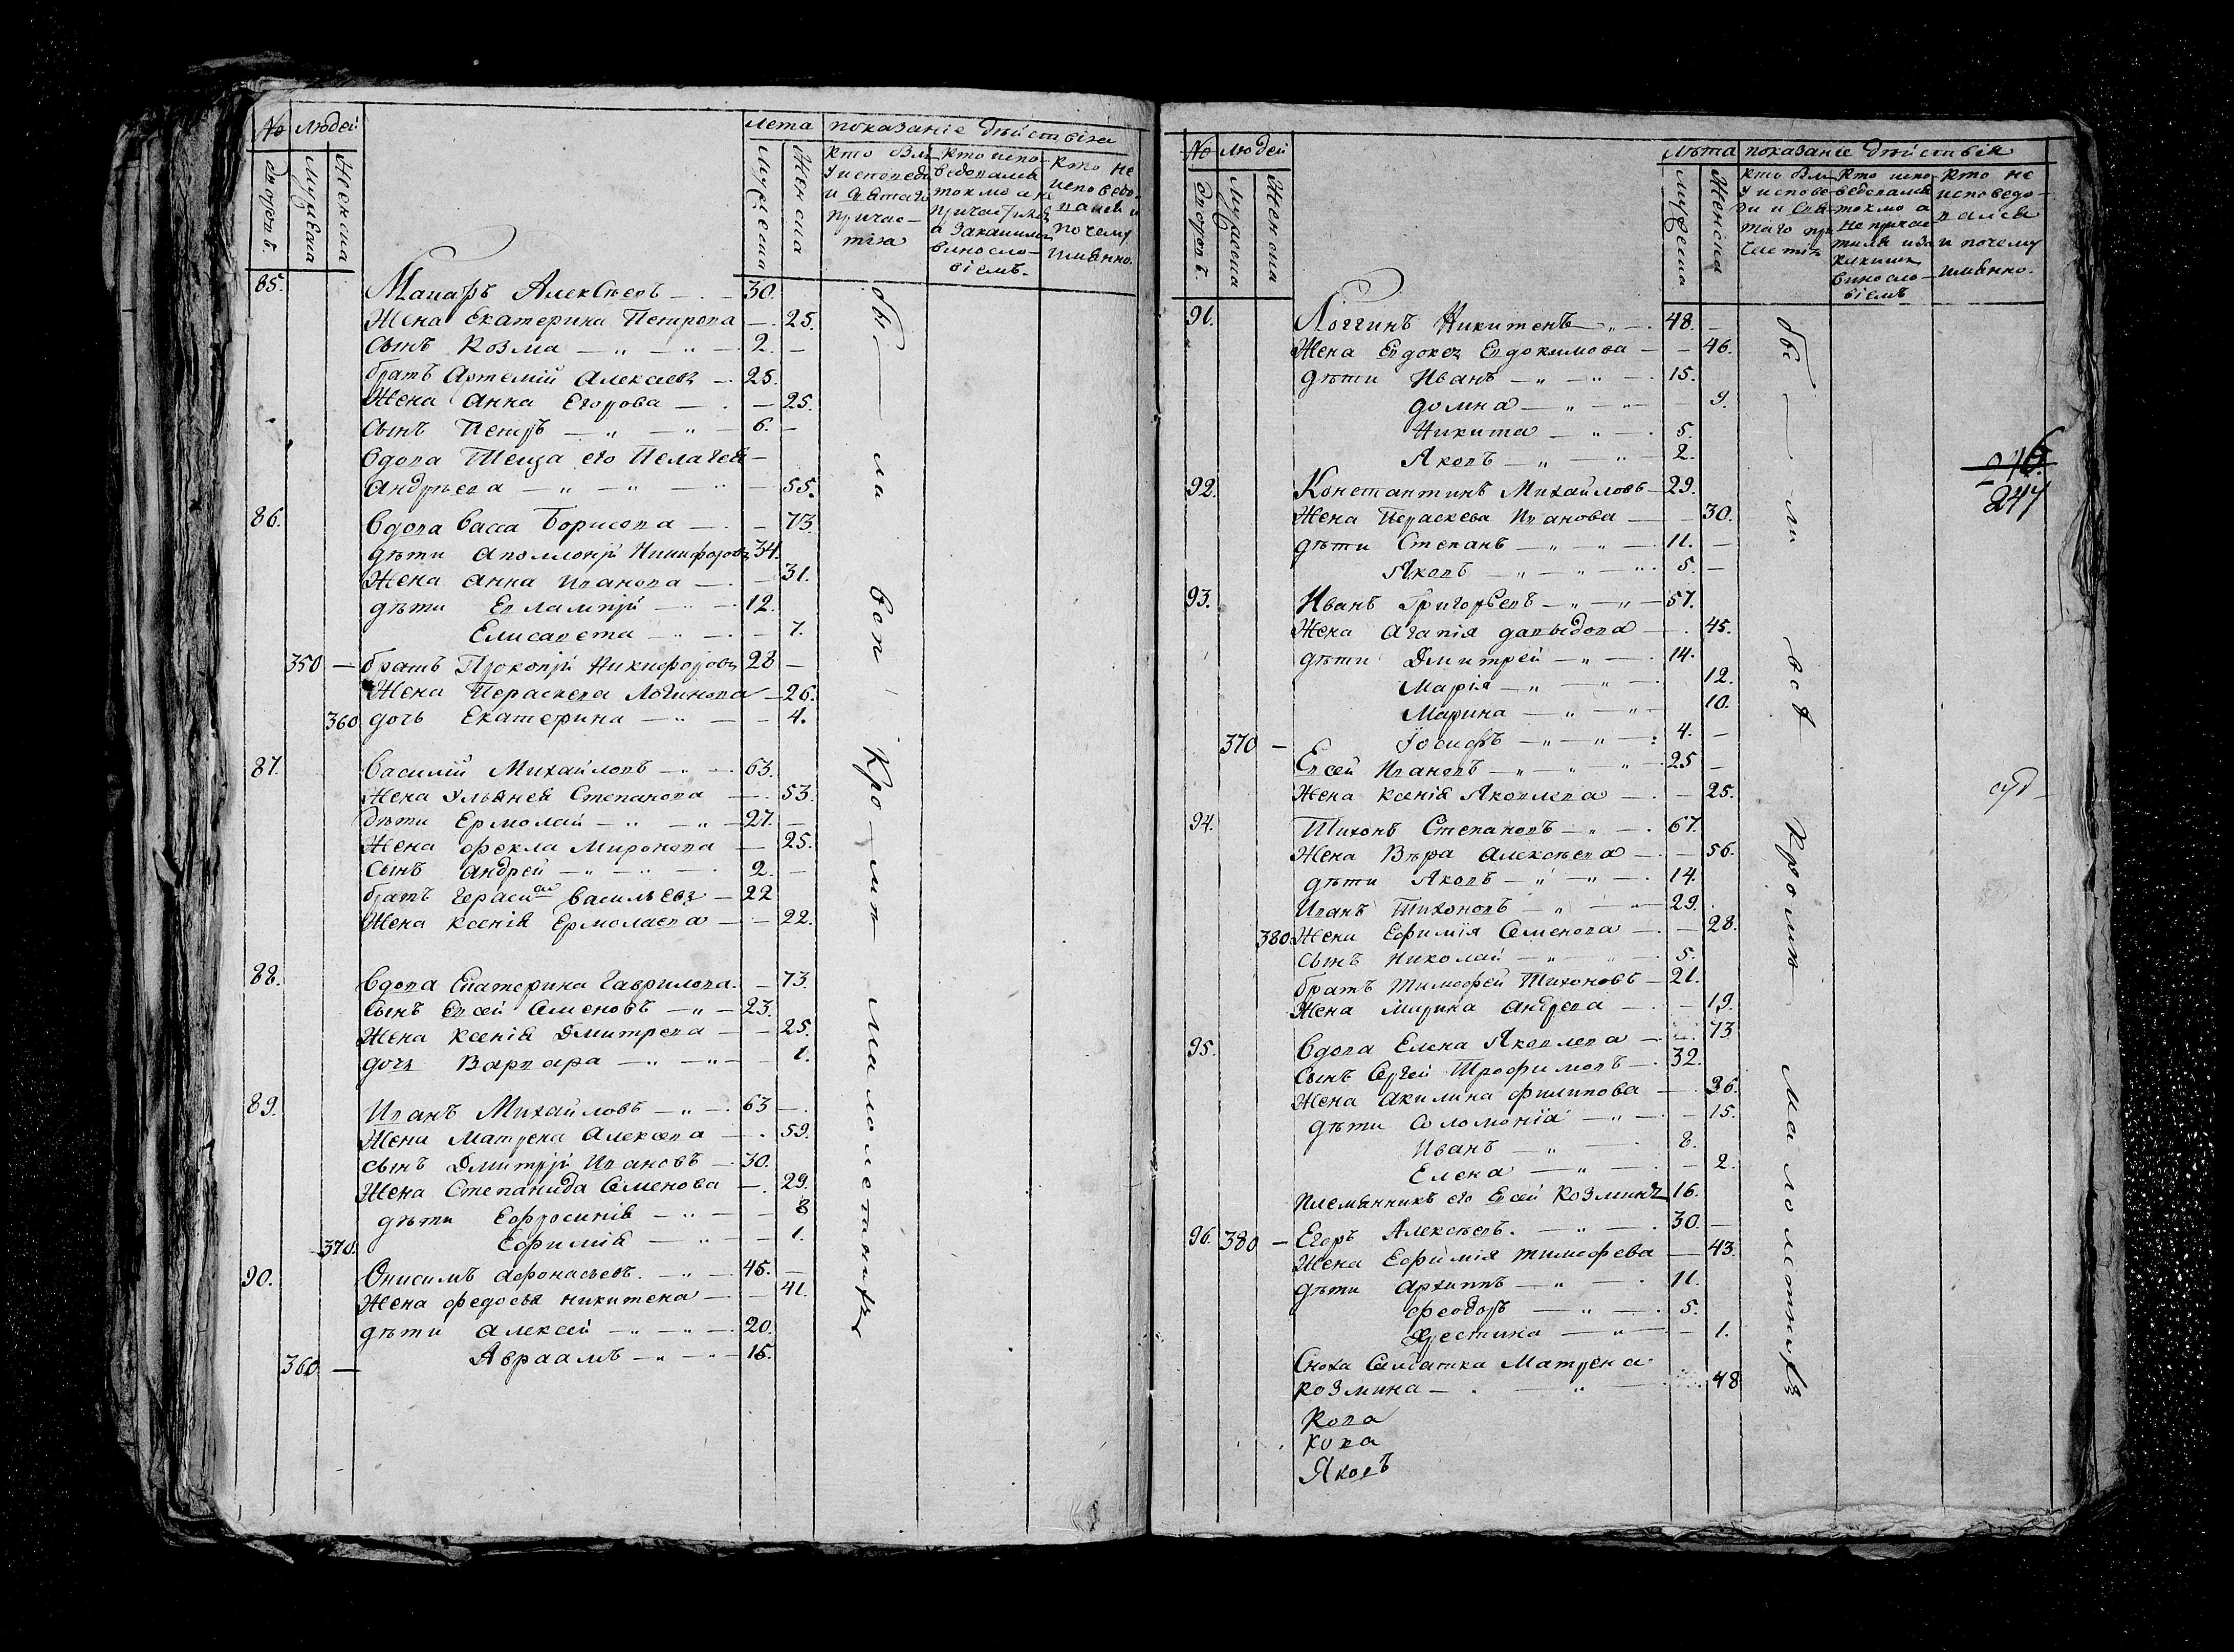 № людей
лета показаніе дѣйствія
дворовъ.
мужеска
женска
мужеска
женска
кто былъ
у исповеди
и святаго
причас-
тія
кто испо-
ведовался
токмо а не
причастился
а за каким
винсло-
віемъ.
кто не
исповедо-
вался и
почему
имянно.
85. Макаръ Алексѣевъ 30.
Жена Екатерина Петрова 25.
сынъ Козма 2.
братъ Артемій Алексеевъ 25.
Жена Анна Егорова 25.
сынъ Петръ 6.
вдова Теща его Пелагея
Андрѣева 55.
86. Вдова Васса Борисова 73.
дѣти Аполлонъ Никифоровъ 34.
Жена Анна Иванова 31.
дѣти Евлампій 12.
Елисавета 7.
350 братъ Прокопій Никифоровъ 28
Жена Параскева Логинова 26.
360 дочь Екатерина 4.
87. Василій Михайловъ 63.
Жена Ульянея Степанова 53.
дѣти Ермолай 27.
Жена Фекла Миронова 25.
сынъ Андрей 2.
братъ Герасим Васильевъ 22
Жена Ксенія Ермолаева 22.
88. Вдова Екатерина Гаврилова 73.
сынъ Евсей Семеновъ 23.
Жена Ксенія Дмитрева 25.
дочь Варвара 1.
89. Иванъ Михайловъ 63
Жена Матрена Алексева 59.
сынъ Дмитрій Ивановъ 30.
Жена Степанида Семенова 29.
дѣти Ефросинія 8
370. Ефимія 1.
90. Онисимъ Афонасьевъ 45.
Жена Федосья Никитена 41.
дѣти Алексей 20.
360 Авраамъ 15.
бы ли вси Кромѣ малолетнихъ
№ людей
лѣта показаніе дѣйствія
дворовъ.
мужеска
женска
мужеска
женска
кто был
у испове-
ди и свя-
таго при-
частія
кто испо-
ведовался
токмо а
не причас
тился и за
каким
винсло-
віемъ
кто не
исповедо-
вался
и почему
имянно.
91. Логгинъ Никитенъ 48.
Жена Евдокея Евдокимова 46.
дѣти Иванъ 15.
Домна 9.
Никита 5.
Яковъ 2.
246
247
92. Константинъ Михайловъ 29.
Жена Параскева Иванова 30.
дѣти Степанъ 11.
Яковъ 5.
93. Иванъ Григорьевъ 57.
Жена Агапія Давыдова 45.
дѣти Дмитрей 14.
Марія 12.
Марина 10.
370 Іосифъ 4.
Евсей Ивановъ 25
Жена Ксенія Яковлева 25.
94. Тихонъ Степановъ 67.
Жена Вѣра Алексѣева 56.
дѣти Яковъ 14.
Иванъ Тихоновъ 29.
380 Жена Ефимія Семенова 28.
сынъ Николай 5.
братъ Тимофей Тихоновъ 21.
Жена Марина Андрева 19.
95. Вдова Елена Яковлева 73
сынъ Сергей Трофимовъ 32.
Жена Акилина Филипова 36.
дѣти Соломонія 15.
Иванъ 8.
Елена 2.
племянникъ его Евсей Козминъ 16.
96. 380 Егоръ Алексѣевъ. 30.
Жена Ефимія Тимофева 43.
дѣти Архиппъ 11.
Феодоръ 5.
Христина 1.
Сноха Салдатка Матрена
Козмина 48
Кова
кова
Яковъ
бы ли всѣ Кромѣ малолетнихъ